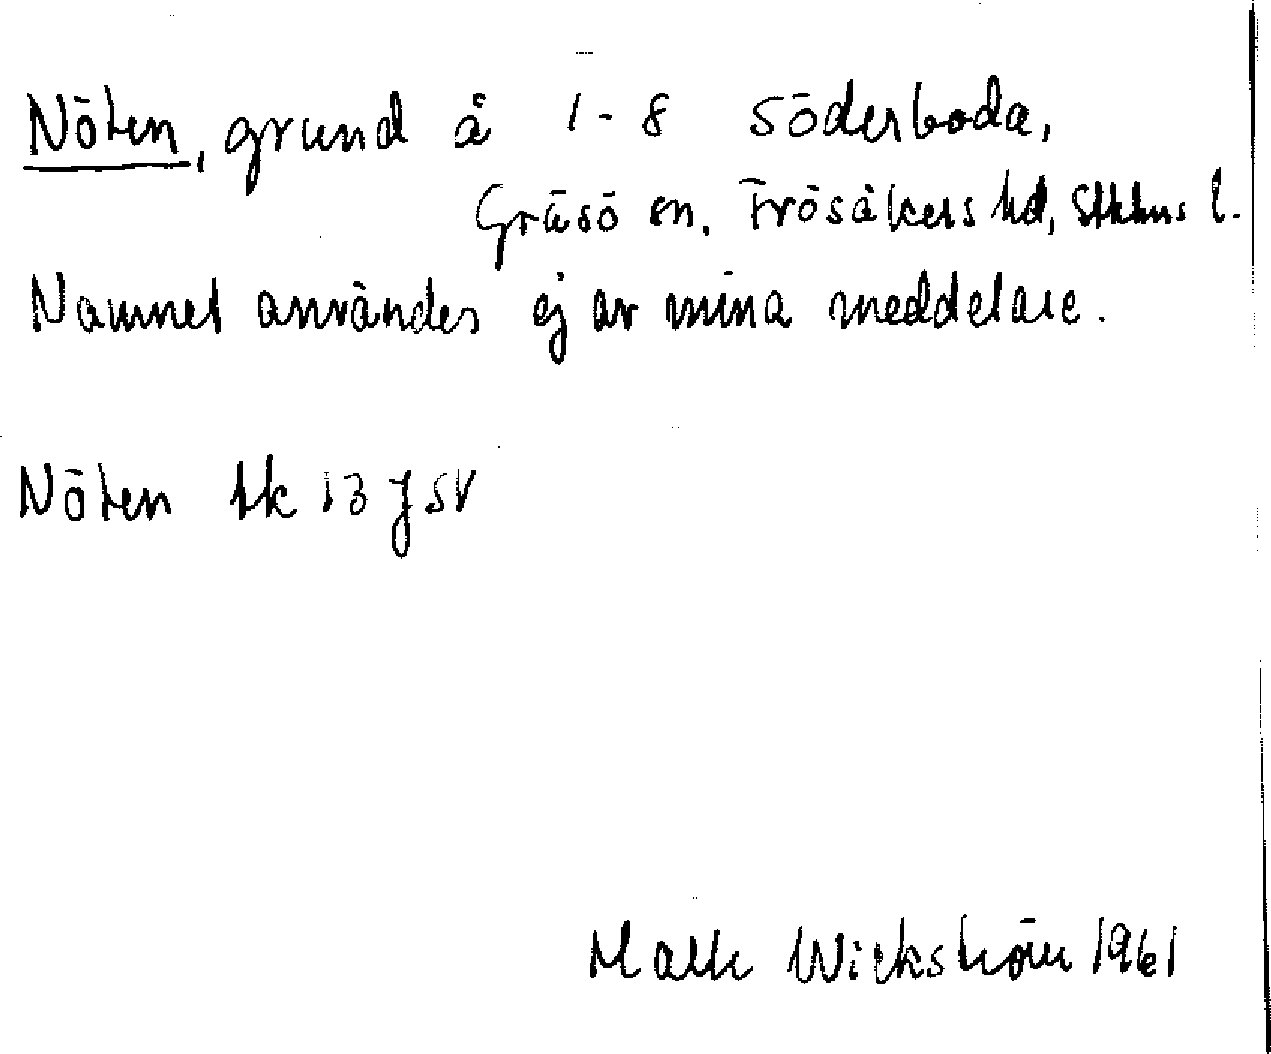 Nöten, grund å 1-8 Söderboda,
Gräsö sn, Frösåkers hd, Sthlms l.
Namnet användes ej av mina meddelare.
Nöten tk 13 J SV
Wickström 1961